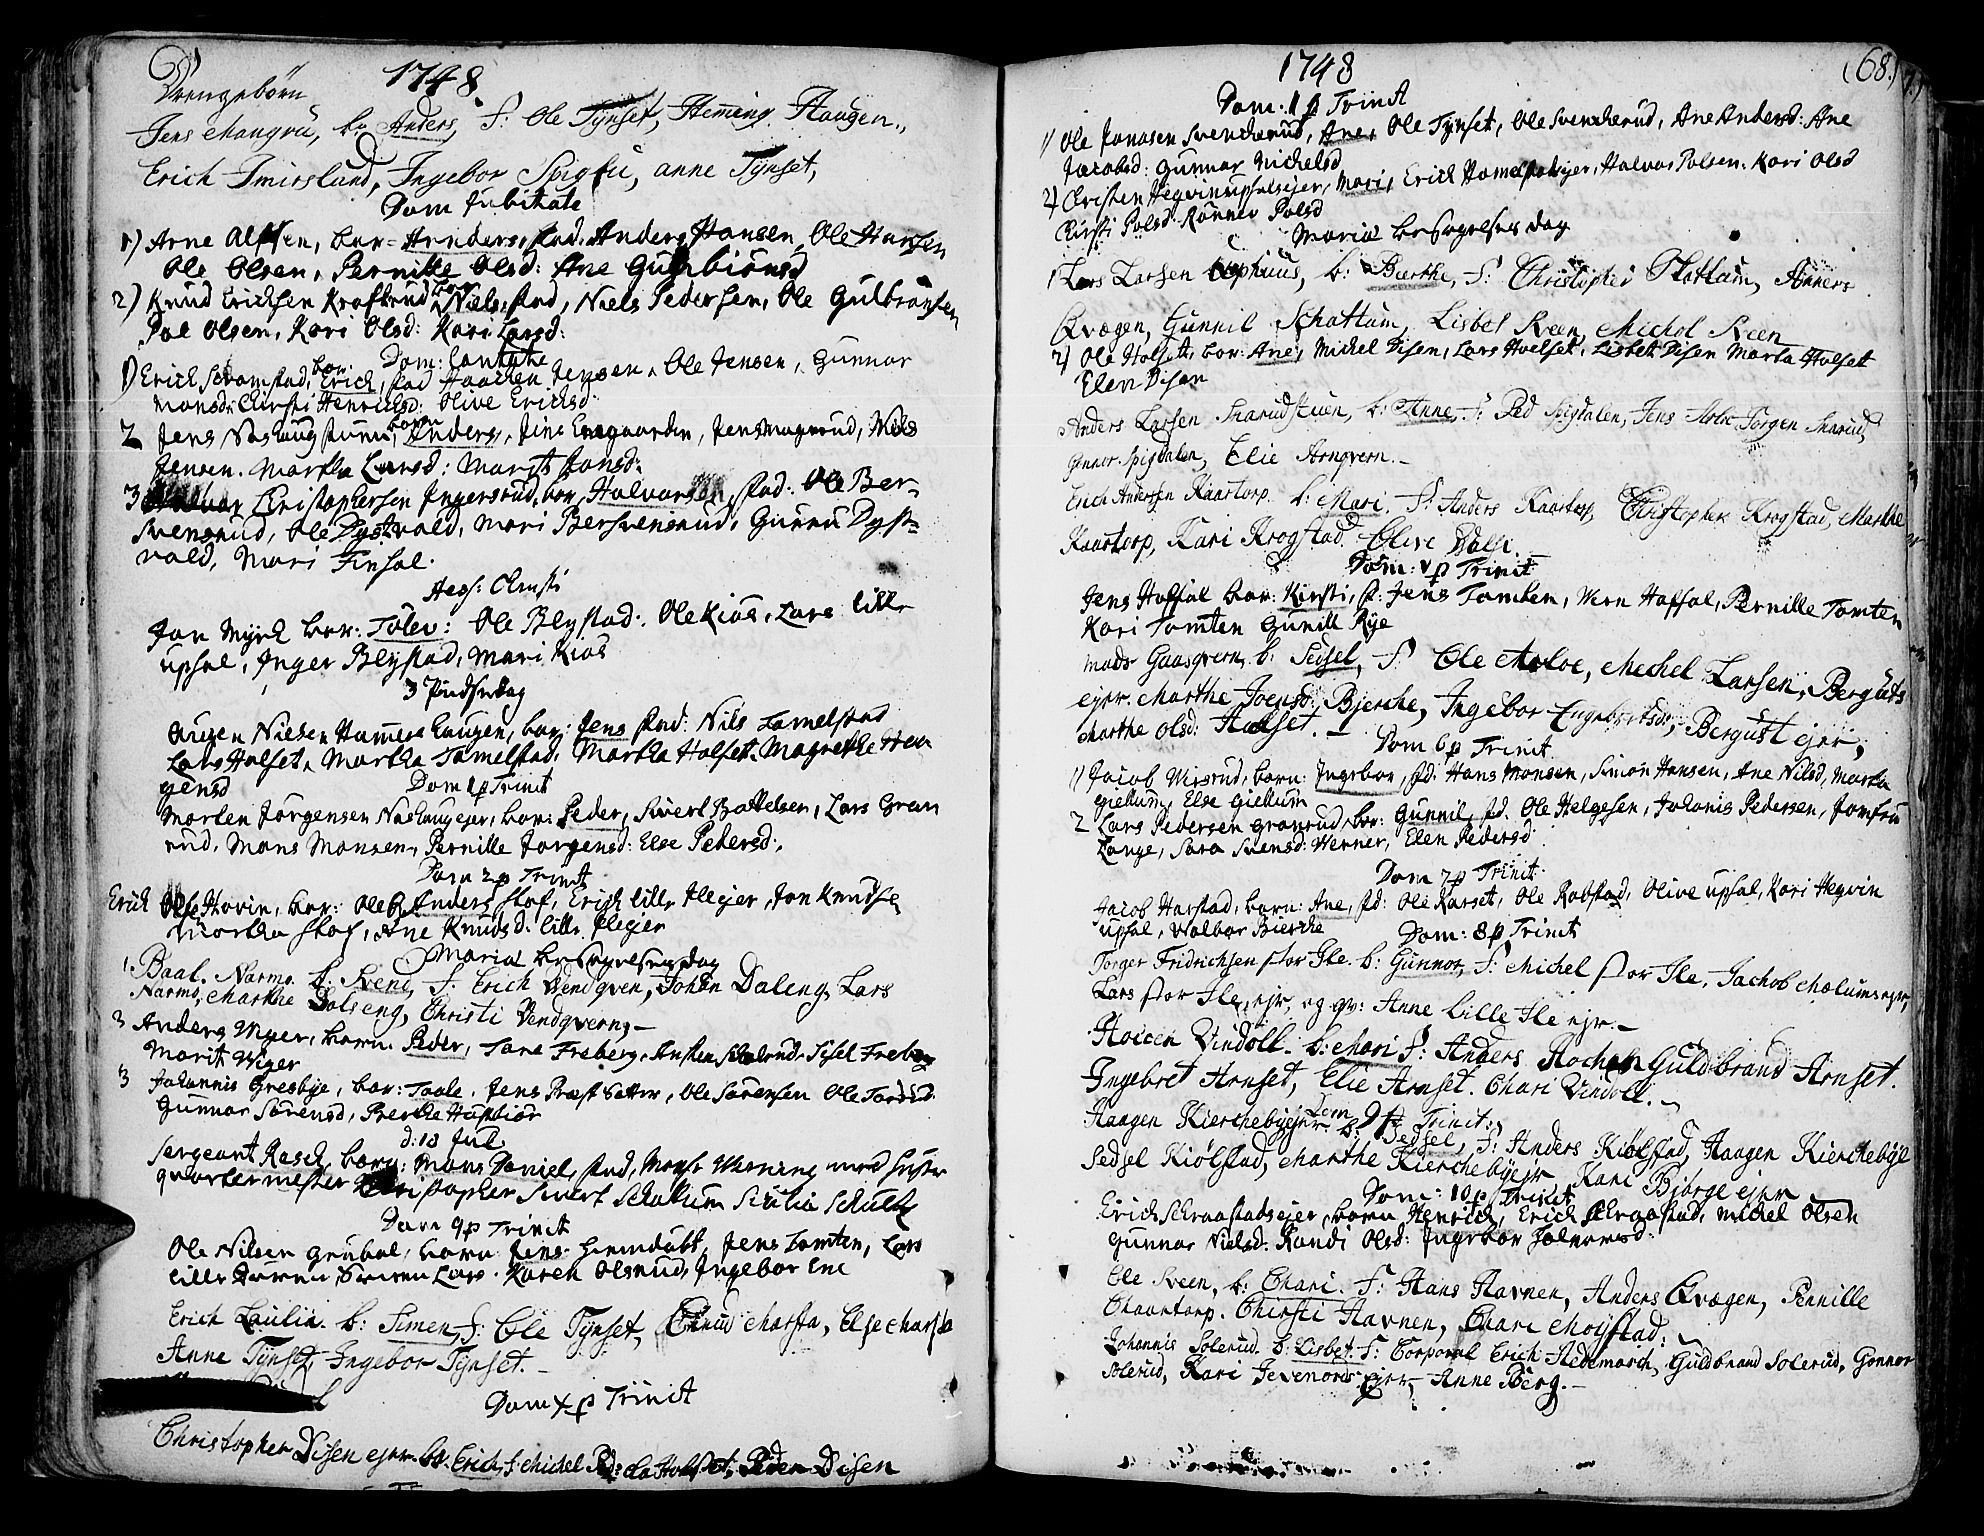 Drengebørn
1748.
Jens Mangru, b: Anders, S: Ole Tynset, Heming Haugen.,
Erich Imirslund, Ingebor Spigtu, anne Tynset,
Dom Jubilate
1) Arne Alfsen, bar= Anders, fad. Anders Hansen, Ole Hansen
Ole Olsen, Pernille Olsd: Ane Gulbiönsd
2) Knud Ericksen Krafterud bar Niels, fad, Niels Pedersen, Ole Gulbransen
Pol Olsen, Kari Olsd: Kari Larsd:
Dom: Cantate
1) Erick Scramstad, bar. Erick, fad Haachen Jensen, Ole Jensen, Gunnar
Monsd: Kirsti Henricksd: Olive Ericksd:
2 Jens Nashaugstuen, barn Anders, Jens Engaarden, Jens Magnrud, Niels
Jensen. Martha Larsd: Margt Jansd:
3 Christophersen Ingersrud, bar Halvor, fad: Ole Ber-
svensrud, Ole Dystvold, Mari Bersvensrud, Gunnu Dyst-
vold, Mari Finsal.
Ass: Christi
Jan Myhre bar: Tolev: Ole Blystad, Ole Kios, Lars lille
upsal, Inger Blystad, Mari Kios
3 Pindsedag
Augen Nielsen Hammers Haugen, bar: Jens fad: Nils Tomelstad
Lars Holset, Martha Tomelstad, Martha Holset, Magrethe Hau
gensd
Dom 1 p Trinit
Morten Jörgensen Nashaugejer, bar: Peder, Siwert Battelsen, Lars Gran
rud, Mons Monsen, Pernille Jörgensd: Else Pedersd:
Dom 2 p Trinit
Erich Hovin, bar: Anders Stof, Erich lille Ilejer, Jon Knudsen
Martha Stof, Ane Knudsd: lille Ilejer
Mariæ besøgelses dag
1. Baal. Narmo b: Svend, S: Erich Vendqvern, Johan Daleng, Lars
Narmo, Marthe Dolseng, Christi Vendqvern,-
2 Anders Myer, barn Peder, Tore Freberg, Sisel Freberg
Marit Wiger
3 Johannis Gresbye, bar: Taale, Jens Præst Sætter, Ole Sørensen Ole Torsrud
Gunnor Sörensd, Berthe Hustiör
d: 13 Jul
Sergeant Rasch, barn: Mons Daniel, fad, Mons: Werning med hustr
qvarteermester Christopher Siwert Schollum Scielia Schultz
Dom 4 p Trinit
Ole Nilsen Grubol, barn Jens hiemdöbt, Jens Tomten, Lars
lille Lars. Karen Olsrud, Ingebor Ene
Erich Laulin. b: Simen, S: Ole Tynset, Knud Marsta, Else Marsta
Anne Tynset, Ingebor Tynset.-
Dom X p Trinit
Christopher Disen ejer. b: Erich, S: Michel Holset, Peder Disen
1748
(68.)
Dom: 1 p Trinit
1) Ole Jonasen Svencherud, Ane, Ole Tynset, Ole Svencherud, Ane Andersd: Ane
Jacobsd: Gunnar Michelsd
2) Cristen Hegvinupsalsejer, Mari, Erick Homelstadejer, Halvor Polsen. Kari Olsd
Kirsti Polsd. Rönnev Polsd
Mariæ besøgelses dag
1 Lars Larsen Ophuus, b: Berthe, S: Christopher Skattum, Anners
Qvægen, Gunnil Schattum, Lisbel Sveen, Michol Sveen
2) Ole Holset, bar: Ane, Michel Disen, Lars Hoelset, Lisbett Disen Marta Holset
Elen Disen
Anders Larsen Sharudstuen, b: Anne, S: Ped Spigdalen, Jens Torgen Sharud,
Gunnor. Spigdalen, Elie Arnqvern.-
Erich Andersen Kaartorp. b: Mari. S: Anders Kaartorp, Christopher Krogstad, Marthe
Kaartorp, Kari Krogstad. Olive Dalsi.-
Dom: V p Trinit
Jens Hoffal bar: Kirsti, f: Jens Tomten, Wern Hoffal, Pernille Tomten
Kari Tomten Gunill Rye
Mads Gaasqvern, b: Sedsel, S: Ole Moloe, Mechel Larsen, Berguts
ejer. Marthe Joensd: Bjerche, Ingebor Engebretsdr, Bergust ejer,
Marthe Olsd: Halset. -
Dom 6 p Trinit
1) Jacob Wirsrud, barn: Ingebor, fd: Hans Monsen, Simon Hansen, Ane Nilsd, Marta
Giellum, Else Giellum
2 Lars Pedersen Granrud, bar: Gunnil, fd. Ole Helgesen, Johanis Pedersen, Jomfru
Lange, Sara Svensd: Werner, Elen Pedersd
Dom 7 p Trinit:
Jacob Harstad, barn: Ane, fd: Ole Karset, Ole Robstad, Olive upsal, Kari Hegvin
upsal, Walbor Bierche
Dom: 8 p Trinit
Torger Fridrichsen stor Ile. b: Gunnor, S: Michel stor Ile, Jachob Mælumsejer,
Lars stor Ile, ejer, og qv: Anne Lille Ile ejer.-
Hoicen Vindoll. b: Mari S: Anders Rochen Guldbrand Arnset.
Ingebret Arnset, Elie Arnset. Chari Vindoll.-
Dom 9 p Trinit:
Haagen Kierchebyejer. b: Sedsel, S: Anders Kiölstad, Haagen Kierchebye
Sedsel Kiölstad, Marthe Kierchebyejr Kari Bjørge ejer
Dom: 10 p Trinit
Erich Schraastadsejer, barn Henrich, Erich Schraastad, Michel Olsen
Gunnor Nielsd: Randi Olsd: Ingebor Halvorsd:
Ole Sveen, b: Chari. S: Hans Havnen, Anders Qvægen, Pernille
Chaartorp. Chirsti Havnen, Chari Moystad.
Johannis Solerud. b: Lisbet. S: Corporal Erich Hedemarch, Guldbrand Solerud, Gonnor
Solerud, Kari Jevenordsejer, Anne Berg.-